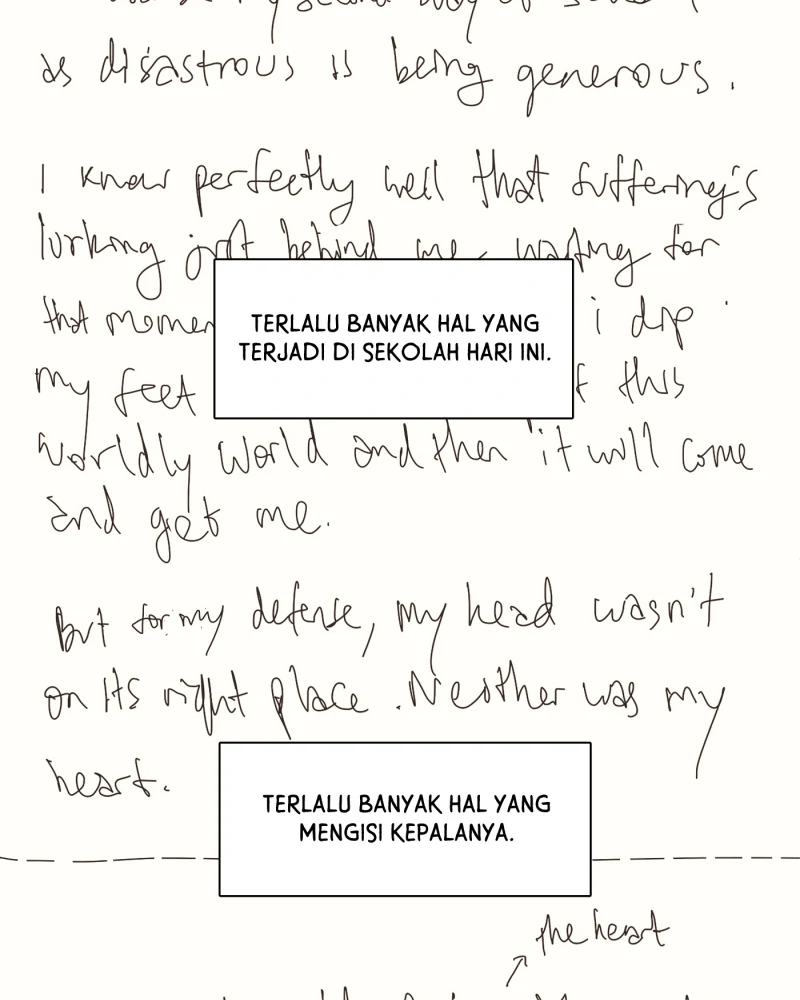 as disastrous is being generous.
I know perfectly well that suffering's
lurking just behind me, waiting for
that momen
TERLALU BANYAK HAL YANG
TERJADI DI SEKOLAH HARI INI.
i dip
my feet
this
worldly world and then it will come
and get me.
But for my defense, my head wasn't
on its right place. Neither was my
heart.
TERLALU BANYAK HAL YANG
MENGISI KEPALANYA.
the heart